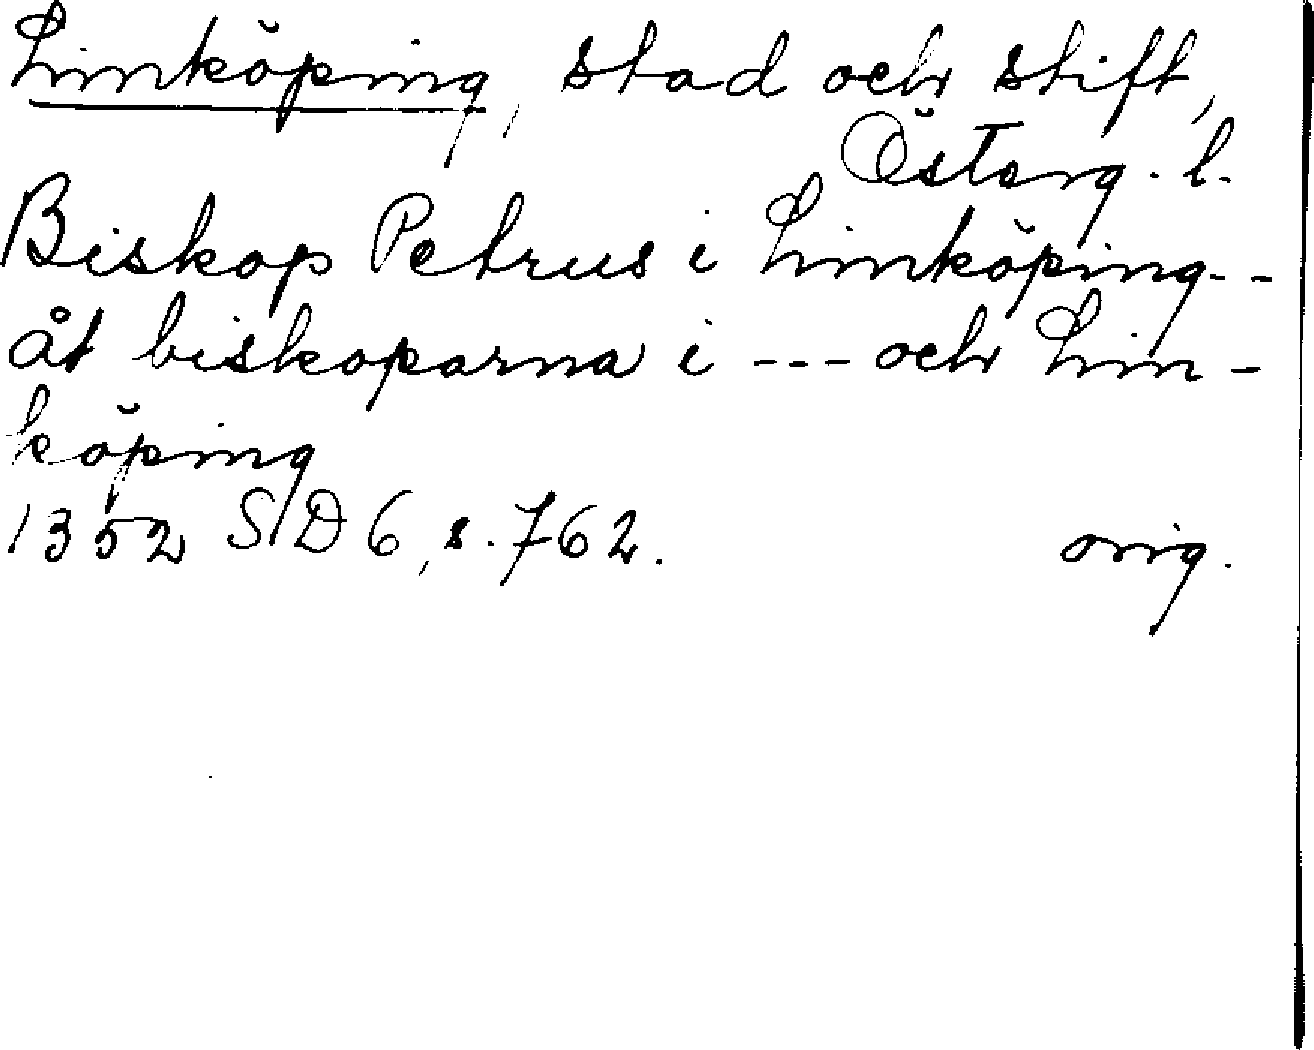 Linköping, stad och stift,
Österg. l.
Biskop Petrus i Linköping--
åt biskoparna i --- och Lin-
köping
1352 SD 6, s. 762. orig.